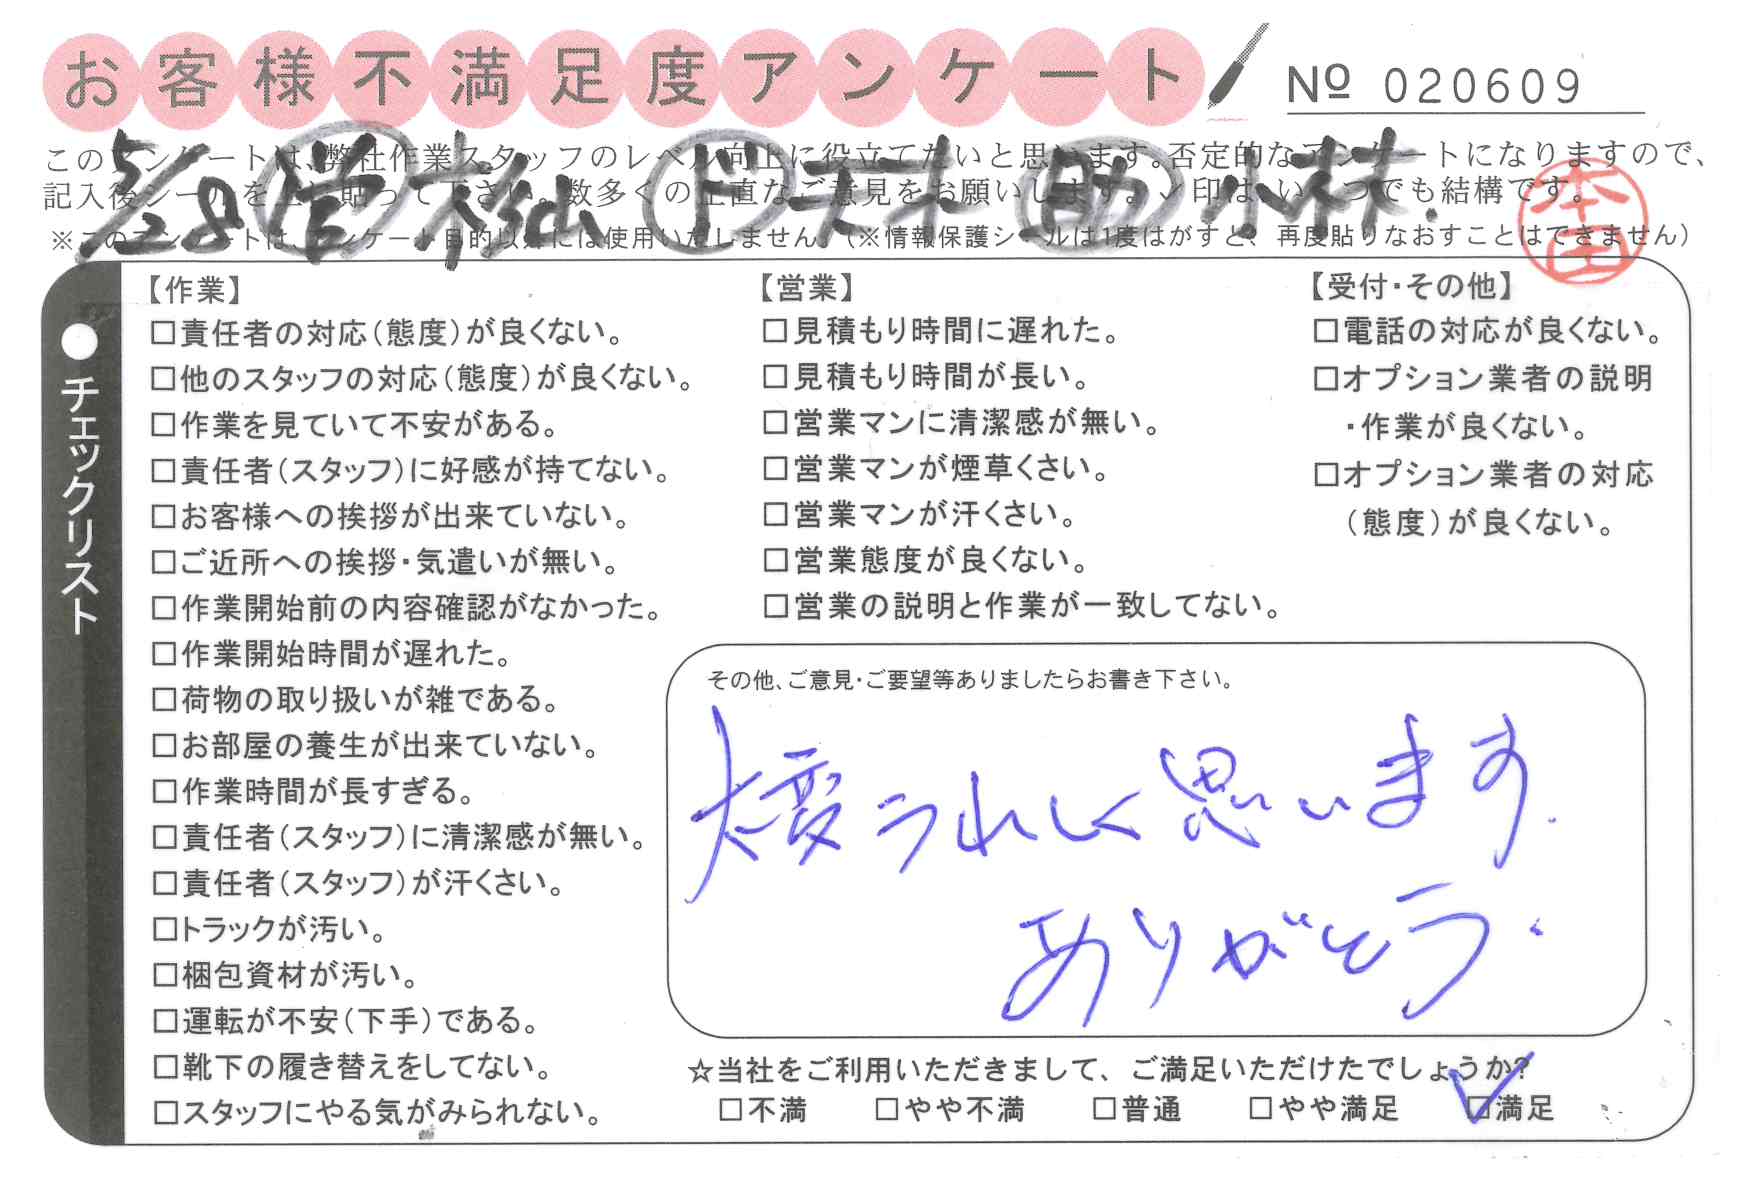 お客様不満足度アンケート
№ 020609
このアンケートは、弊社作業スタッフのレベル向上に役立てたいと思います。否定的なアンケートになりますので、
記入後シールを上に貼って下さい。数多くの正直なご意見をお願いします。✓印は、いくつでも結構です。
5/28 杉山 ド 天木 助 小林.
※このアンケートは、アンケート目的以外には使用いたしません。(※情報保護シールは1度はがすと、再度貼りなおすことはできません)
本田
●チェックリスト
【作業】
□責任者の対応(態度)が良くない。
□他のスタッフの対応(態度)が良くない。
□作業を見ていて不安がある。
□責任者(スタッフ)に好感が持てない。
□お客様への挨拶が出来ていない。
□ご近所への挨拶・気遣いが無い。
□作業開始前の内容確認がなかった。
□作業開始時間が遅れた。
□荷物の取り扱いが雑である。
□お部屋の養生が出来ていない。
□作業時間が長すぎる。
□責任者(スタッフ)に清潔感が無い。
□責任者(スタッフ)が汗くさい。
□トラックが汚い。
□梱包資材が汚い。
□運転が不安(下手)である。
□靴下の履き替えをしてない。
□スタッフにやる気がみられない。
【営業】
□見積もり時間に遅れた。
□見積もり時間が長い。
□営業マンに清潔感が無い。
□営業マンが煙草くさい。
□営業マンが汗くさい。
□営業態度が良くない。
□営業の説明と作業が一致してない。
【受付・その他】
□電話の対応が良くない。
□オプション業者の説明
・作業が良くない。
□オプション業者の対応
(態度)が良くない。
その他、ご意見・ご要望等ありましたらお書き下さい。
大変うれしく思います.
ありがとう.
☆当社をご利用いただきまして、ご満足いただけたでしょうか?
□不満 □やや不満 □普通 □やや満足 ☑満足